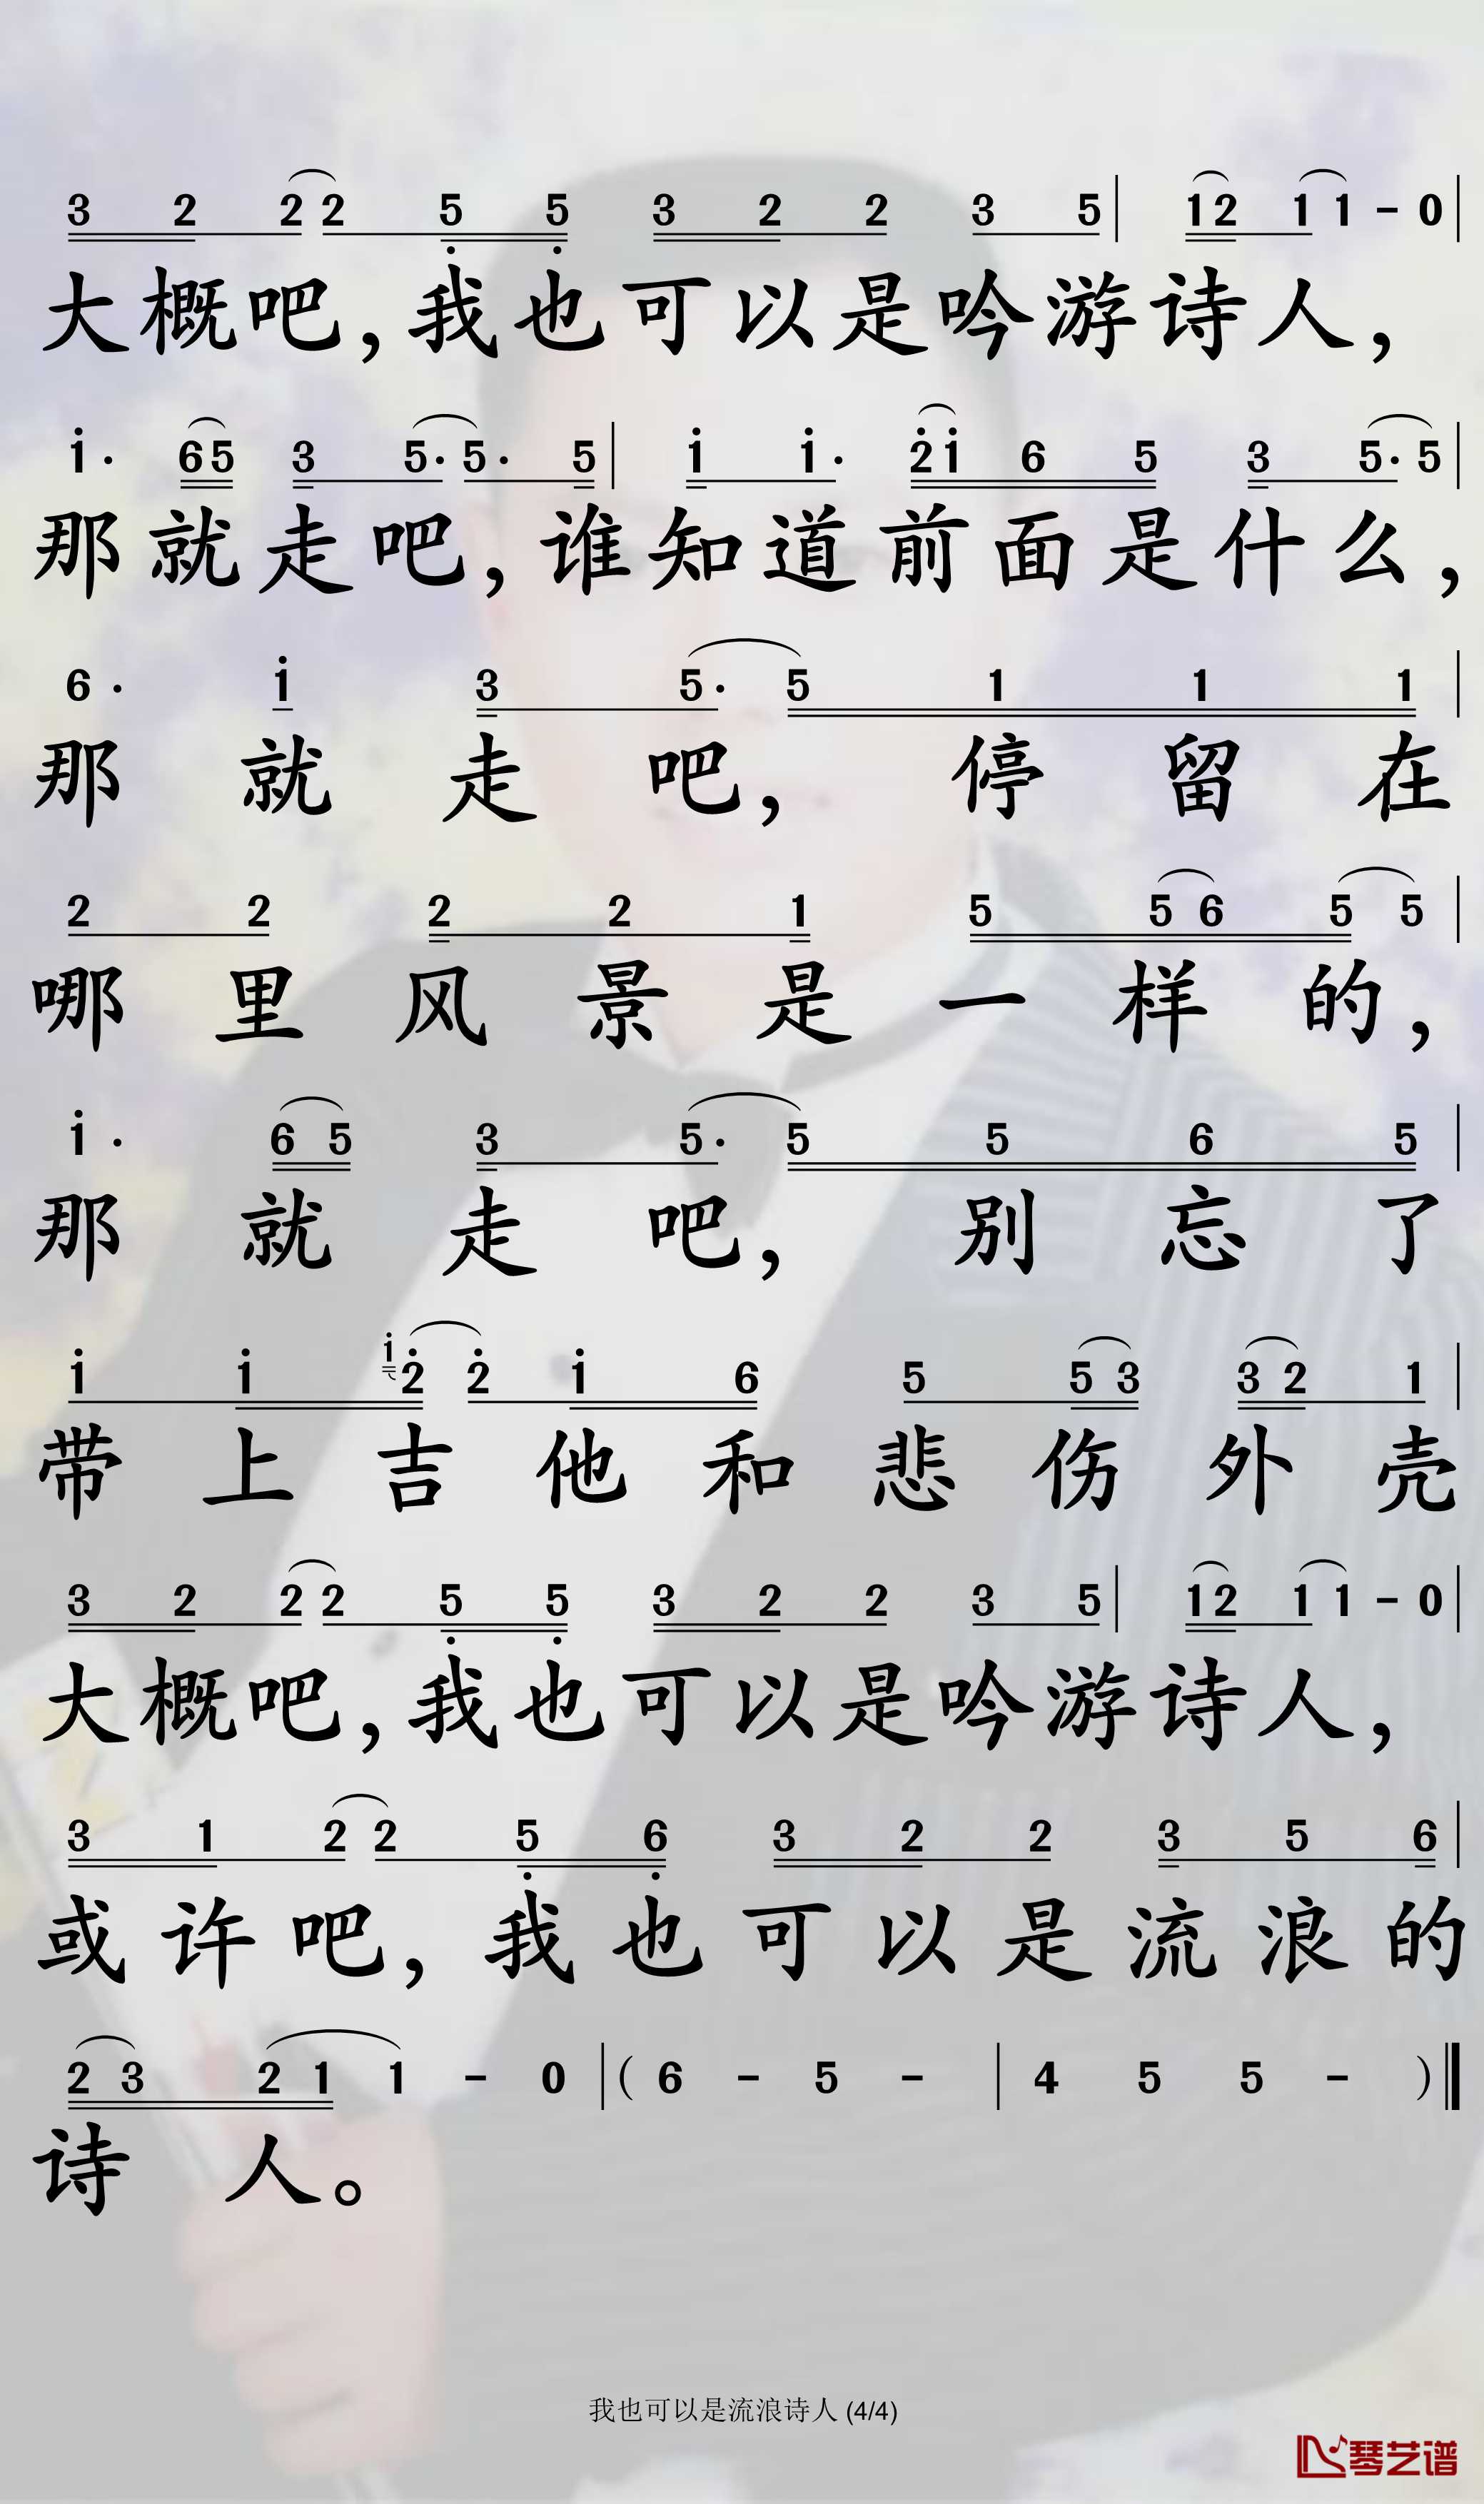 3 2 2 2 5 5 3 2 2 3 5 | 1 2 1 1 - 0 |
大概吧,我也可以是吟游诗人,
i· 6 5 3 5· 5· 5 | i i· 2 i 6 5 3 5· 5 |
那就走吧,谁知道前面是什么,
6· i 3 5· 5 1 1 1 |
那就走吧,停留在
2 2 2 2 1 5 5 6 5 5 |
哪里风景是一样的,
i· 6 5 3 5· 5 5 6 5 |
那就走吧,别忘了
i i i 2 2 i 6 5 5 3 3 2 1 |
带上吉他和悲伤外壳
3 2 2 2 5 5 3 2 2 3 5 | 1 2 1 1 - 0 |
大概吧,我也可以是吟游诗人,
3 1 2 2 5 6 3 2 2 3 5 6 |
或许吧,我也可以是流浪的
2 3 2 1 1 - 0 | ( 6 - 5 - | 4 5 5 - ) ‖
诗人。
我也可以是流浪诗人 (4/4)
琴艺谱